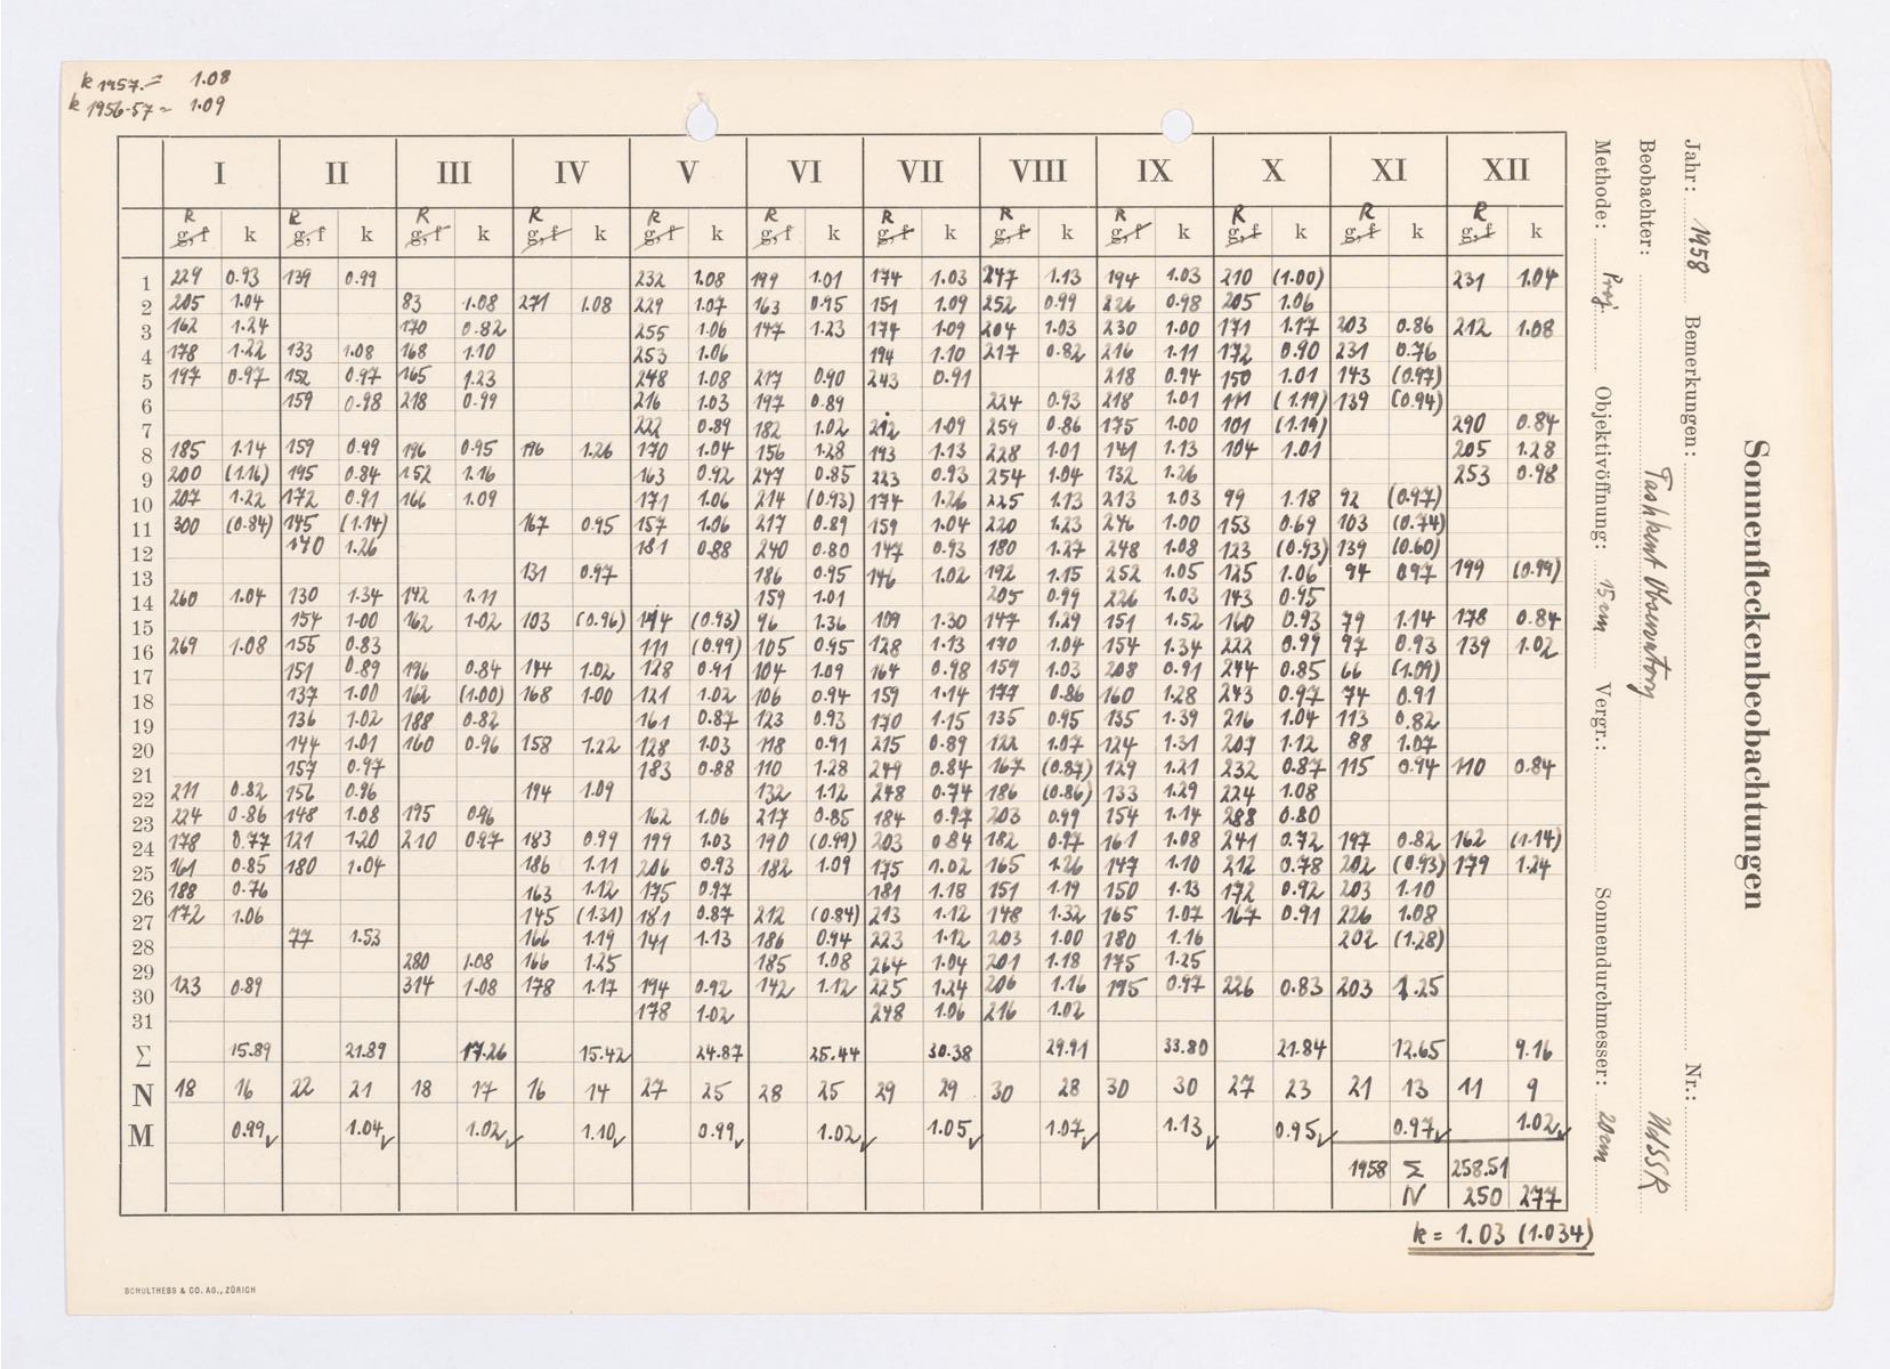 k 1957 = 1.08
k 1956-57 = 1.09
I II III IV V VI VII VIII IX X XI XII
R R R R R R R R R R R R
g, f k g, f k g, f k g, f k g, f k g, f k g, f k g, f k g, f k g, f k g, f k g, f k
1 229 0.93 139 0.99 232 1.08 199 1.01 174 1.03 247 1.13 194 1.03 210 (1.00) 231 1.04
2 205 1.04 83 1.08 271 1.08 229 1.07 163 0.95 151 1.09 252 0.99 226 0.98 205 1.06
3 162 1.24 170 0.82 255 1.06 147 1.23 174 1.09 204 1.03 230 1.00 171 1.17 203 0.86 212 1.08
4 178 1.22 133 1.08 168 1.10 253 1.06 194 1.10 217 0.82 216 1.11 172 0.90 231 0.76
5 197 0.97 152 0.97 165 1.23 248 1.08 217 0.90 243 0.91 218 0.94 150 1.01 143 (0.97)
6 159 0.98 218 0.99 216 1.03 197 0.89 224 0.93 218 1.01 111 (1.19) 139 (0.94)
7 222 0.89 182 1.02 212 1.09 259 0.86 175 1.00 101 (1.19) 290 0.84
8 185 1.14 159 0.99 196 0.95 196 1.26 170 1.04 156 1.28 193 1.13 228 1.01 141 1.13 104 1.01 205 1.28
9 200 (1.16) 195 0.84 152 1.16 163 0.92 247 0.85 223 0.93 254 1.04 132 1.26 253 0.98
10 207 1.22 172 0.91 166 1.09 171 1.06 214 (0.93) 174 1.26 225 1.13 213 1.03 99 1.18 92 (0.97)
11 300 (0.84) 145 (1.14) 167 0.95 157 1.06 217 0.89 159 1.04 220 1.23 246 1.00 153 0.69 103 (0.74)
12 140 1.26 181 0.88 240 0.80 147 0.93 180 1.27 248 1.08 123 (0.93) 139 (0.60)
13 131 0.97 186 0.95 146 1.02 192 1.15 252 1.05 125 1.06 94 0.97 199 (0.99)
14 260 1.04 130 1.34 142 1.11 159 1.01 205 0.99 226 1.03 143 0.95
15 154 1.00 162 1.02 103 (0.96) 144 (0.93) 96 1.36 109 1.30 147 1.29 151 1.52 160 0.93 79 1.14 178 0.84
16 269 1.08 155 0.83 111 (0.99) 105 0.95 128 1.13 170 1.04 154 1.34 222 0.99 97 0.93 139 1.02
17 151 0.89 196 0.84 144 1.02 128 0.91 104 1.09 164 0.98 159 1.03 208 0.91 244 0.85 66 (1.09)
18 137 1.00 162 (1.00) 168 1.00 121 1.02 106 0.94 159 1.14 177 0.86 160 1.28 243 0.97 74 0.91
19 136 1.02 188 0.82 161 0.87 123 0.93 170 1.15 135 0.95 135 1.39 216 1.04 113 0.82
20 144 1.01 160 0.96 158 1.22 128 1.03 118 0.91 215 0.89 122 1.07 124 1.31 207 1.12 88 1.07
21 157 0.97 183 0.88 110 1.28 249 0.84 167 (0.87) 129 1.21 232 0.87 115 0.94 110 0.84
22 211 0.82 152 0.96 194 1.09 132 1.12 248 0.74 186 (0.86) 133 1.29 224 1.08
23 224 0.86 148 1.08 195 0.96 162 1.06 217 0.85 184 0.97 203 0.99 154 1.14 288 0.80
24 178 0.77 121 1.20 210 0.97 183 0.99 199 1.03 190 (0.99) 203 0.84 182 0.97 161 1.08 241 0.72 197 0.82 162 (1.14)
25 161 0.85 180 1.04 186 1.11 206 0.93 182 1.09 175 1.02 165 1.26 147 1.10 212 0.78 202 (0.93) 179 1.24
26 188 0.76 163 1.12 175 0.97 181 1.18 151 1.19 150 1.13 172 0.92 203 1.10
27 172 1.06 145 (1.31) 181 0.87 212 (0.84) 213 1.12 148 1.32 165 1.07 167 0.91 226 1.08
28 77 1.53 166 1.19 141 1.13 186 0.94 223 1.12 203 1.00 180 1.16 202 (1.28)
29 280 1.08 166 1.25 185 1.08 264 1.04 201 1.18 175 1.25
30 123 0.89 314 1.08 178 1.17 194 0.92 142 1.12 225 1.24 206 1.16 195 0.97 226 0.83 203 1.25
31 178 1.02 248 1.06 216 1.02
Σ 15.89 21.89 17.26 15.42 24.87 25.44 30.38 29.91 33.80 21.84 12.65 9.16
N 18 16 22 21 18 17 16 14 27 25 28 25 29 29 30 28 30 30 27 23 21 13 11 9
M 0.99 1.04 1.02 1.10 0.99 1.02 1.05 1.07 1.13 0.95 0.97 1.02
1958 Σ 258.51
N 250 277
k = 1.03 (1.034)
SCHULTHESS & CO. AG., ZÜRICH
Sonnenfleckenbeobachtungen
Jahr: 1958 Bemerkungen: Nr.:
Beobachter: Tashkent Observatory UdSSR
Methode: Proj. Objektivöffnung: 15 cm Vergr.: Sonnendurchmesser: 20 cm